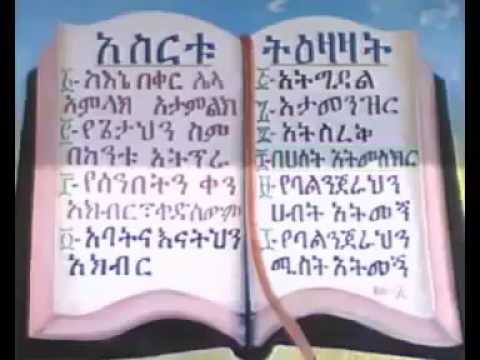 አስርቱ
፩- ከእኔ በቀር ሌላ
አምላክ አታምልክ
፪- የጌታህን ስም
በከንቱ አትጥራ
፫- የሰንበትን ቀን
አክብር፣ቀድሰውም
፬- አባትና እናትህን
አክብር
ትዕዛዛት
፭- አትግደል
፮- አታመንዝር
፯- አትስረቅ
፰- በሀሰት አትመስክር
፱- የባልንጀራህን
ሀብት አትመኝ
፲- የባልንጀራህን
ሚስት አትመኝ